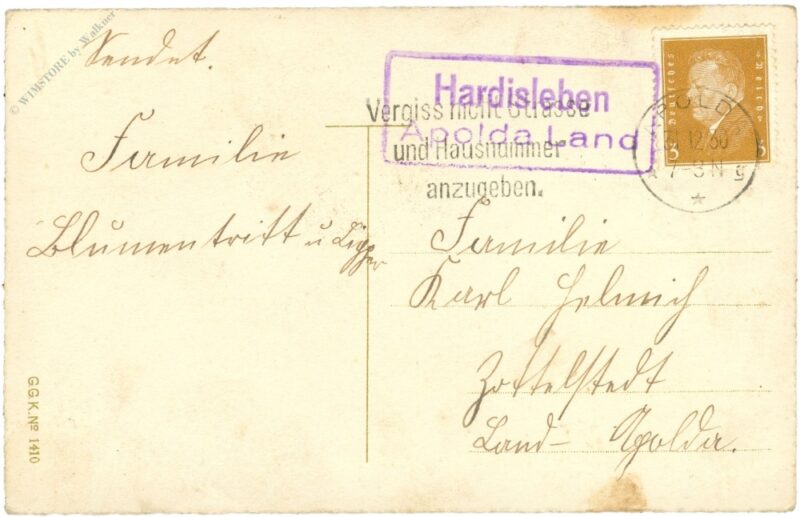 © WIMSTORE by Walkner
Sendet.
Familie
Blumentritt u
G.G.K. Nº 1410
Hardisleben
Apolda Land
Vergiss nicht Strasse
und Hausnummer
anzugeben.
Deutsches Reich
3
APOLDA
12.30
7-8 N
★
Familie
Karl Helmich
Zottelstedt
Land- Apolda.